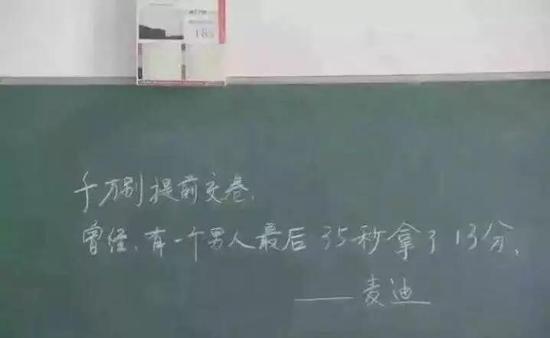 185
千万别提前交卷.
曾经.有一个男人最后35秒拿了13分.
——麦迪